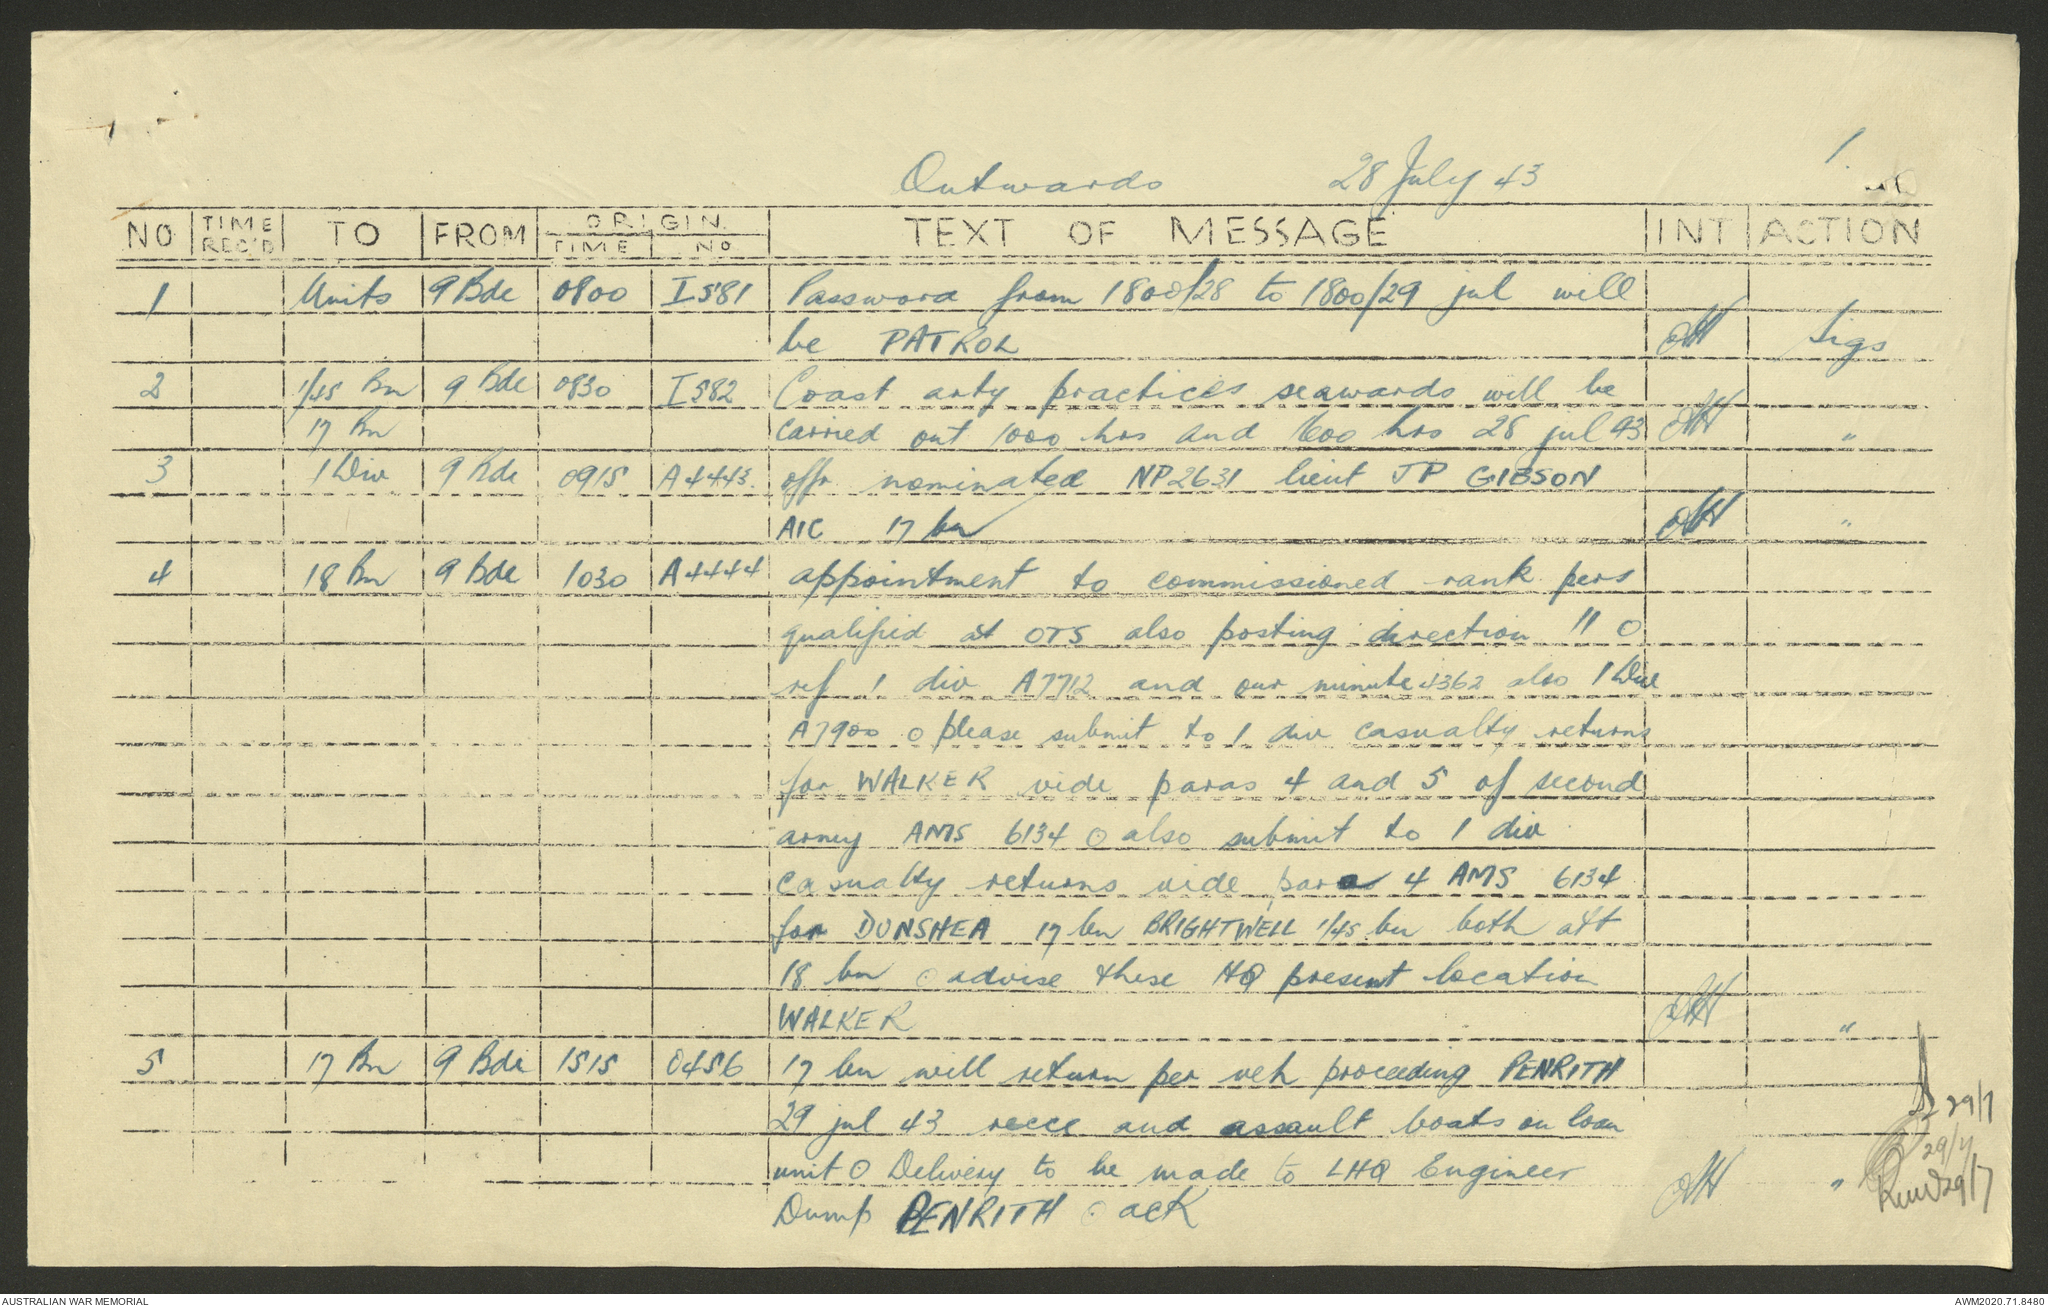 1.
Outwards 28 July 43
NO TIME REC'D TO FROM ORIGIN TIME NO TEXT OF MESSAGE INT ACTION
1 Units 9 Bde 0800 I581 Password from 1800/28 to 1800/29 jul will
be PATROL Sigs
2 1/45 Bn 9 Bde 0830 I582 Coast arty practices seawards will be
17 Bn carried out 1000 hrs and 1600 hrs 28 jul 43 "
3 1 Div 9 Bde 0915 A4443. offr nominated NP2631 lieut JP GIBSON
AIC 17 bn "
4 18 Bn 9 Bde 1030 A4444 appointment to commissioned rank pers
qualified at OTS also posting direction 11 O
ref 1 div A7712 and our minute 4362 also 1 Div
A7900 O please submit to 1 div casualty returns
for WALKER vide paras 4 and 5 of second
army AMS 6134 O also submit to 1 div
casualty returns vide para 4 AMS 6134
for DUNSHEA 17 bn BRIGHTWELL 1/45 bn both att
18 bn O advise these HQ present location
WALKER "
5 17 Bn 9 Bde 1515 O456 17 bn will return per veh proceeding PENRITH
29 jul 43 recce and assault boats on loan
unit O Delivery to be made to LHQ Engineer "
Dump PENRITH O ack
29/7
29/7
29/7
AUSTRALIAN WAR MEMORIAL
AWM2020.71.8480